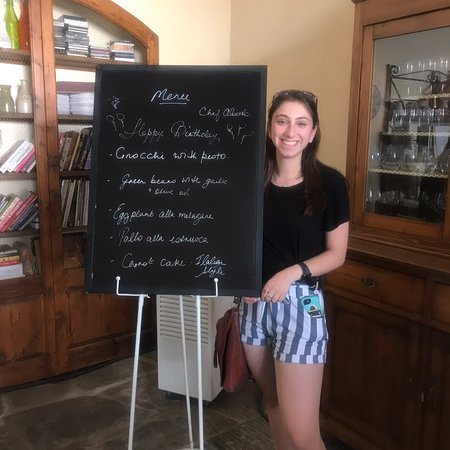 Menu
Chef Alberto.
Happy Birthday
- Gnocchi with pesto.
- Green beans with garlic
+ olive oil
- Eggplant alla
- Pollo alla etrusca
- Carrot cake - Italian
Style